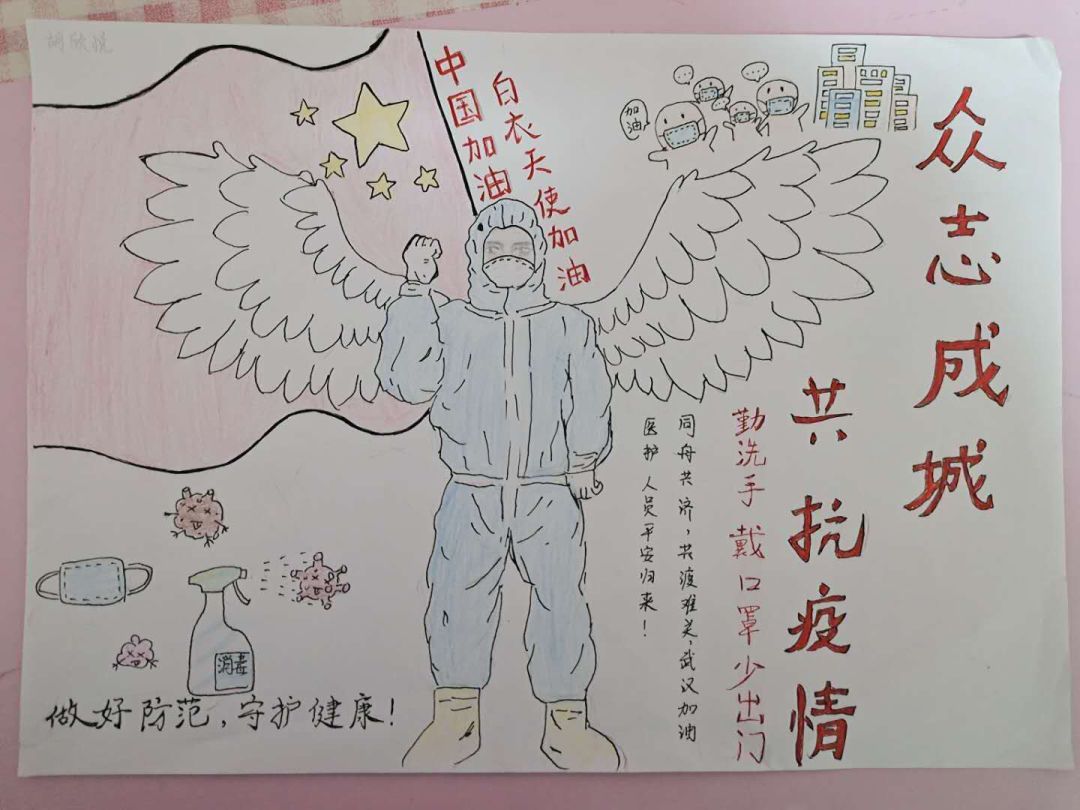 众志成城
共抗疫情
勤洗手 戴口罩 少出门
同舟共济，共渡难关，武汉加油
医护人员平安归来！
中国加油
白衣天使加油
加油
胡欣悦
消毒
做好防范，守护健康！